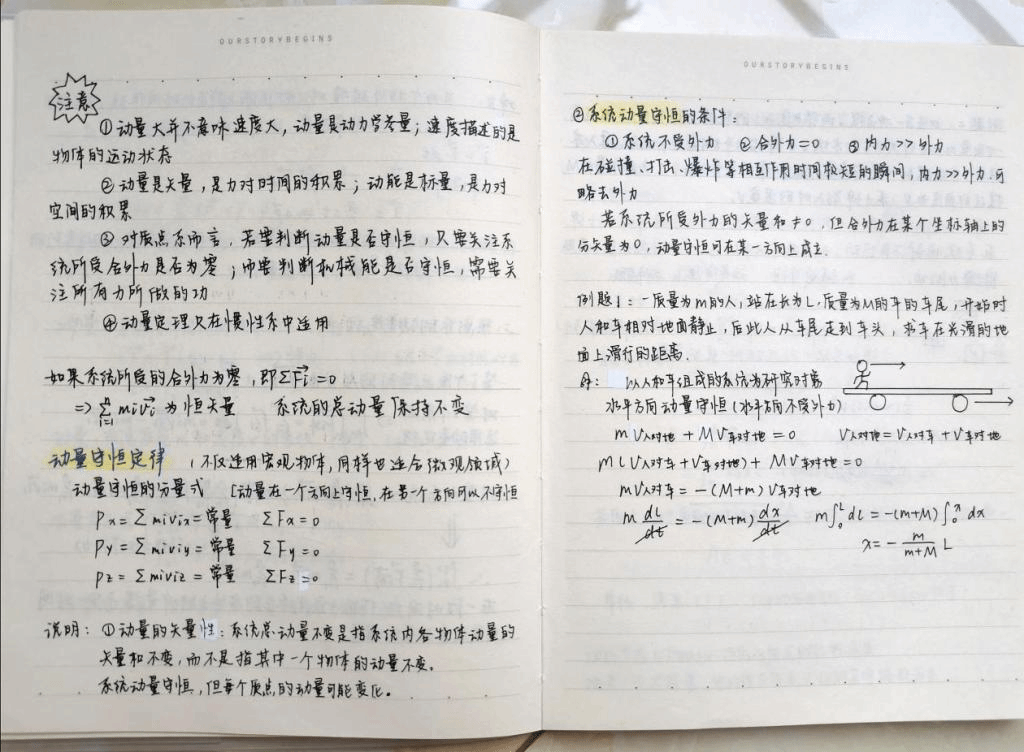 OURSTORYBEGINS
注意
①动量大并不意味速度大，动量是动力学考量；速度描述的是
物体的运动状态
②动量是矢量，是力对时间的积累；动能是标量，是力对
空间的积累
③对质点系而言，若要判断动量是否守恒，只要关注系
统所受合外力是否为零；而要判断机械能是否守恒，需要关
注所有力所做的功
④动量定理只在惯性系中适用
如果系统所受的合外力为零，即ΣF⃗i=0
⇒ Σ(i=1→n) miv⃗i 为恒矢量 系统的总动量保持不变
动量守恒定律 （不仅适用宏观物体，同样也适合微观领域）
动量守恒的分量式 [动量在一个方向上守恒，在另一个方向可以不守恒
Px=Σmivix=常量 ΣFx=0
Py=Σmiviy=常量 ΣFy=0
Pz=Σmiviz=常量 ΣFz=0
说明：①动量的矢量性：系统总动量不变是指系统内各物体动量的
矢量和不变，而不是指其中一个物体的动量不变。
系统动量守恒，但每个质点的动量可能变化。
OURSTORYBEGINS
②系统动量守恒的条件：
①系统不受外力 ②合外力=0 ③内力>>外力
在碰撞、打击、爆炸等相互作用时间较短的瞬间，内力>>外力，可
略去外力
若系统所受外力的矢量和≠0，但合外力在某个坐标轴上的
分矢量为0，动量守恒可在某一方向上成立.
例题1：一质量为m的人，站在长为L、质量为M的车的车尾，开始时
人和车相对地面静止，后此人从车尾走到车头，求车在光滑的地
面上滑行的距离.
解： 以人和车组成的系统为研究对象
水平方向动量守恒（水平方向不受外力）
mV人对地+MV车对地=0 V人对地=V人对车+V车对地
m(V人对车+V车对地)+MV车对地=0
mV人对车=-(M+m)V车对地
m dL/dt = -(M+m) dx/dt m∫₀ᴸdL=-(m+M)∫₀ˣdx
x=- m/(m+M) L